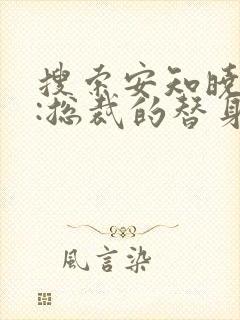 搜索安知晓
:总裁的替身
風言染